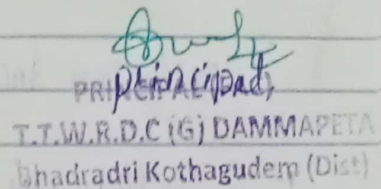 Principal,
PRINCIPAL
T.T.W.R.D.C (G) DAMMAPETA
Bhadradri Kothagudem (Dist)